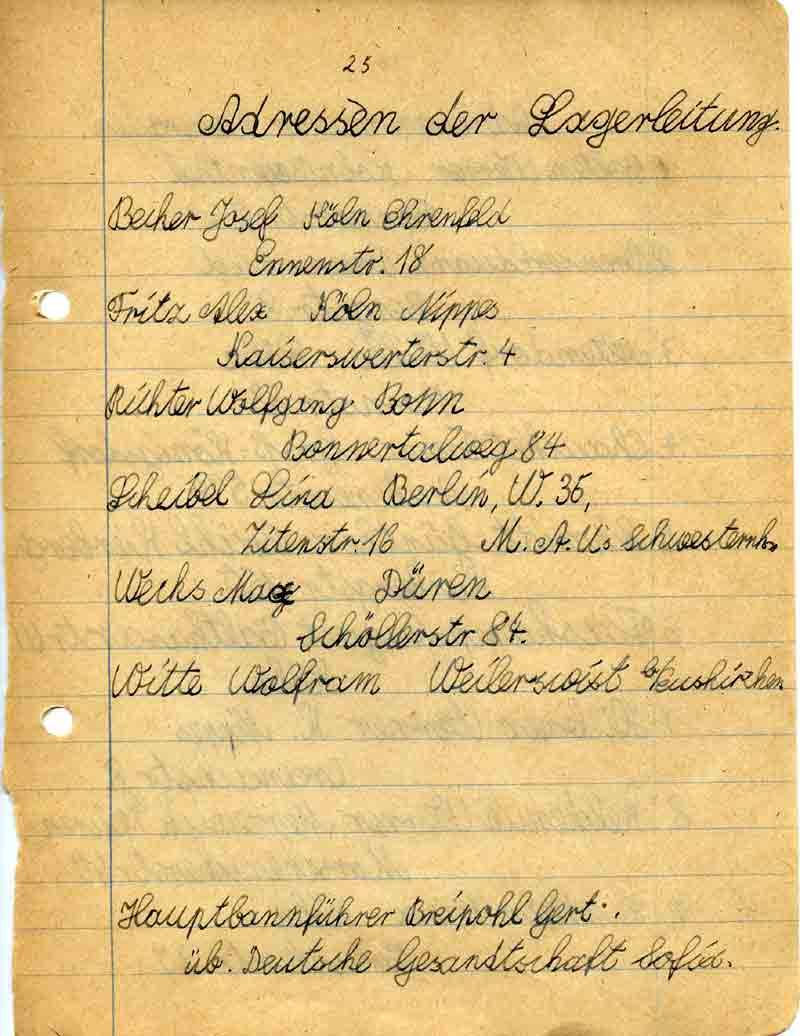 25
Adressen der Lagerleitung.
Becher Josef Köln Ehrenfeld
Ennenstr. 18
Fritz Alex Köln Nippes
Kaiserswerterstr. 4
Richter Wolfgang Bonn
Bonnertalweg 84
Scheibel Lina Berlin, W. 35,
Zitenstr. 16 M. A. Us Schwesternh.
Wecks Max Düren
Schöllerstr 84.
Witte Wolfram Weilerswist b/Euskirchen
Hauptbannführer Breipohl Gert.
üb. Deutsche Gesandtschaft Sofia.